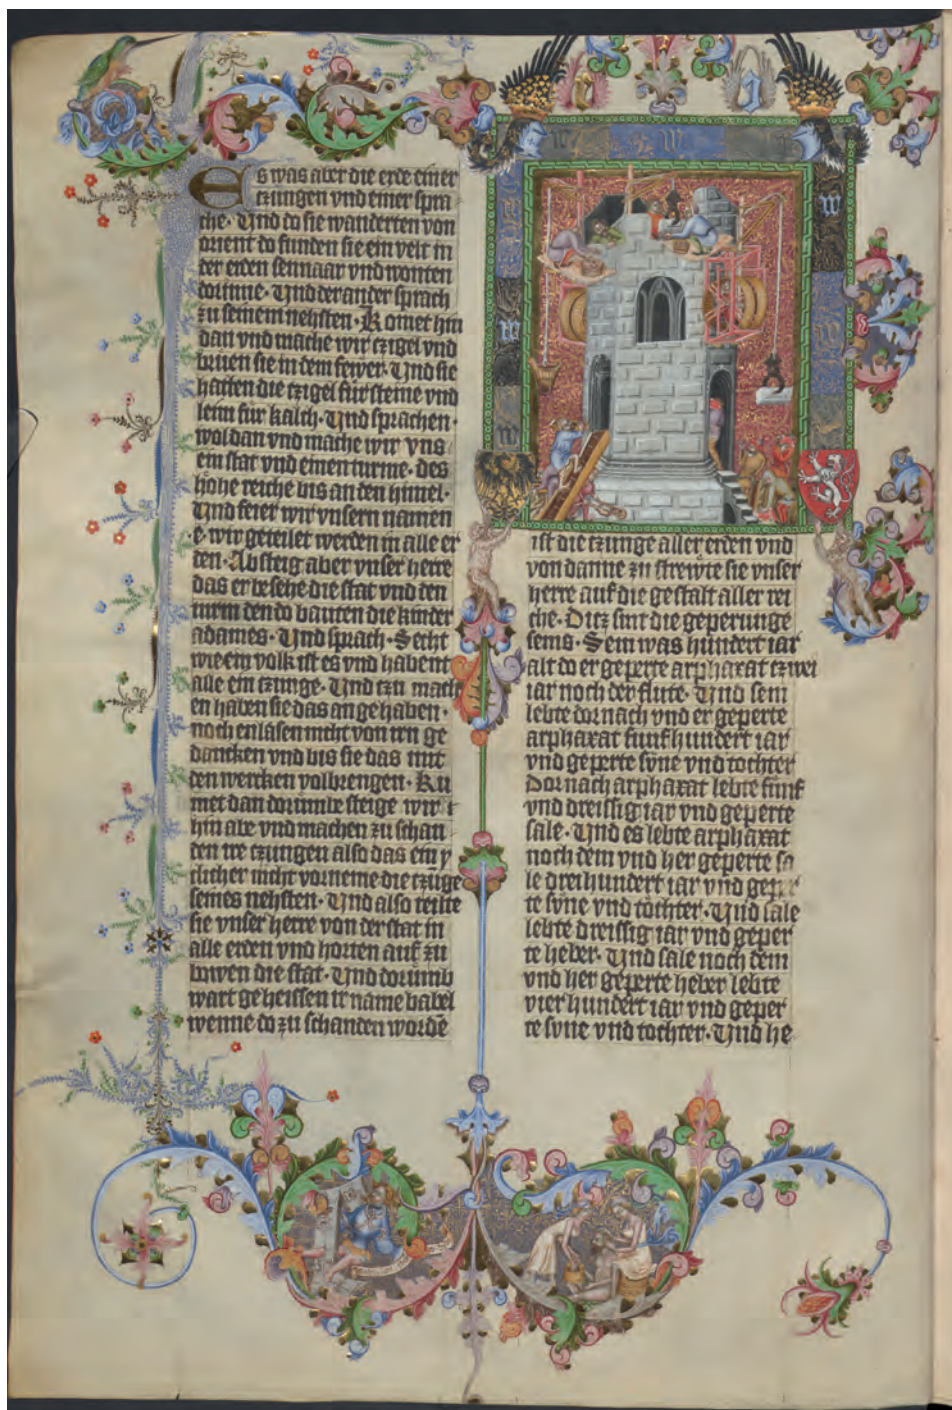 Es was aber die erde einer
czungen vnd einer spra
che. Vnd do sie wanderten von
orient do funden sie ein velt in
der erden sennaar vnd wonten
dorinne. Vnd der ander sprach
zu seinem nehsten. Komet hin
dan vnd mache wir czigel vnd
bruen sie in dem fewer. Vnd sie
hatten die czigel für steine vnd
leim für kalch. Vnd sprachen.
wol dan vnd mache wir vns
ein stat vnd einen turme. des
höhe reiche bis an den himel.
Vnd feier wir vnsern namen
e. wir geteilet werden in alle er
den. Absteig aber vnser herre
das er besehe die stat vnd den
turm den do bauten die kinder
adames. Vnd sprach. Secht
wie ein volk ist es vnd habent
alle ein czunge. Vnd czu mach
en haben sie das angehaben.
noch enlasen nicht von irn ge
dancken vnd bis sie das mit
den wercken volbrengen. Ku
met dan dorumb steige wir
hin abe vnd machen zu schan
den ire czungen also das ein y
clicher nicht vorneme die czuge
seines nehsten. Vnd also teilte
sie vnser herre von der stat in
alle erden vnd horten auf zu
bowen die stat. Vnd dorumb
wart geheissen ir name babel
wenne do zu schanden wordē
ist die czunge aller erden vnd
von danne zu strewte sie vnser
herre auf die gestalt aller rei
che. Ditz sint die geperunge
sems. Sem was hundert iar
alt do er geperte arphaxat czwei
iar noch der flute. Vnd sem
lebte dornach vnd er geperte
arphaxat funfhundert iar
vnd geperte süne vnd tochter
Dornach arphaxat lebte fünf
vnd dreissig iar vnd geperte
sale. Vnd es lebte arphaxat
noch dem vnd her geperte sa
le dreihundert iar vnd geper
te süne vnd töchter. Vnd sale
lebte dreissig iar vnd geper
te heber. Vnd sale noch dem
vnd her geperte heber lebte
vier hundert iar vnd geper
te süne vnd tochter. Vnd he